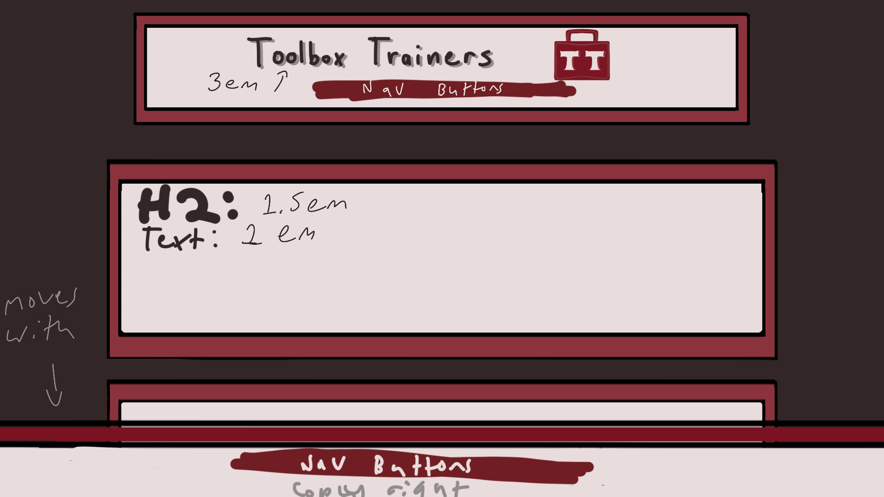 Toolbox Trainers
TT
3em ↑
Nav Buttons
H2: 1.5em
Text: 1 em
moves
with
↓
Nav Buttons
copy right